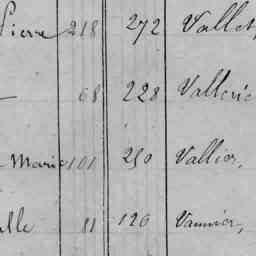 Pierre 218 272 Vallet,
68 228 Vallerie
Marie 101 250 Vallier,
81 120 Vannier,